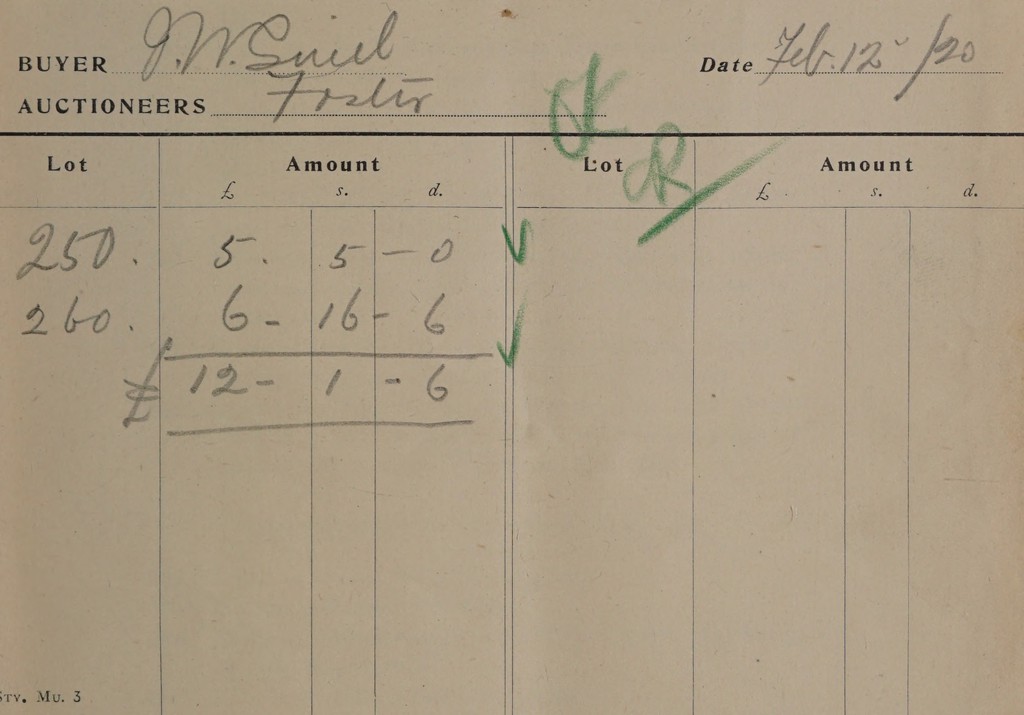 BUYER J.W. Date Feb. 12 /20
AUCTIONEERS Foster
OK
Lot Amount Lot Amount
£ s. d. £ s. d.
250. 5. 5 - 0
260. 6 - 16 - 6
£ 12 - 1 - 6
Mu. 3